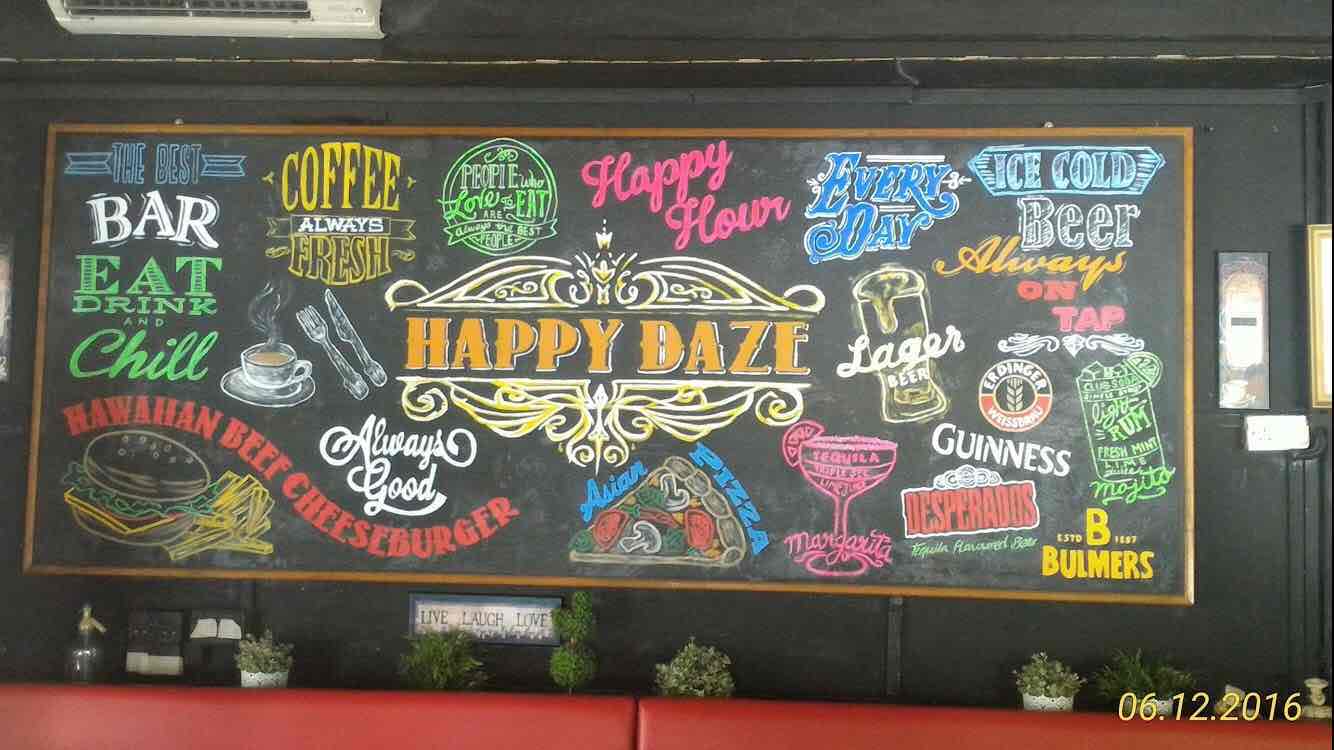 THE BEST
BAR
EAT
DRINK
AND
Chill
COFFEE
ALWAYS
FRESH
PEOPLE who
Love to EAT
ARE
always the BEST
PEOPLE
Happy
Hour
EVERY
DAY
ICE COLD
Beer
Always
ON
TAP
HAPPY DAZE
Lager
BEER
ERDINGER
WEISSBRÄU
CLUB SODA
SIMPLE SYRUP
light
RUM
FRESH MINT
LIME
juice
Mojito
HAWAIIAN BEEF CHEESEBURGER
Always
Good
Asian
PIZZA
TEQUILA
TRIPLE SEC
LIME JUICE
Margarita
GUINNESS
DESPERADOS
Tequila Flavoured Beer
B
ESTD 1887
BULMERS
LIVE LAUGH LOVE
06.12.2016